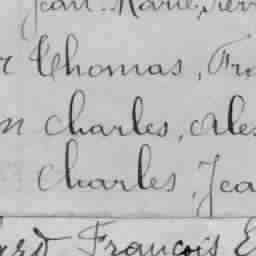 Jean Marie, Pierr
r Thomas, Fra
n Charles, Ales
Charles, Jea
ard François E